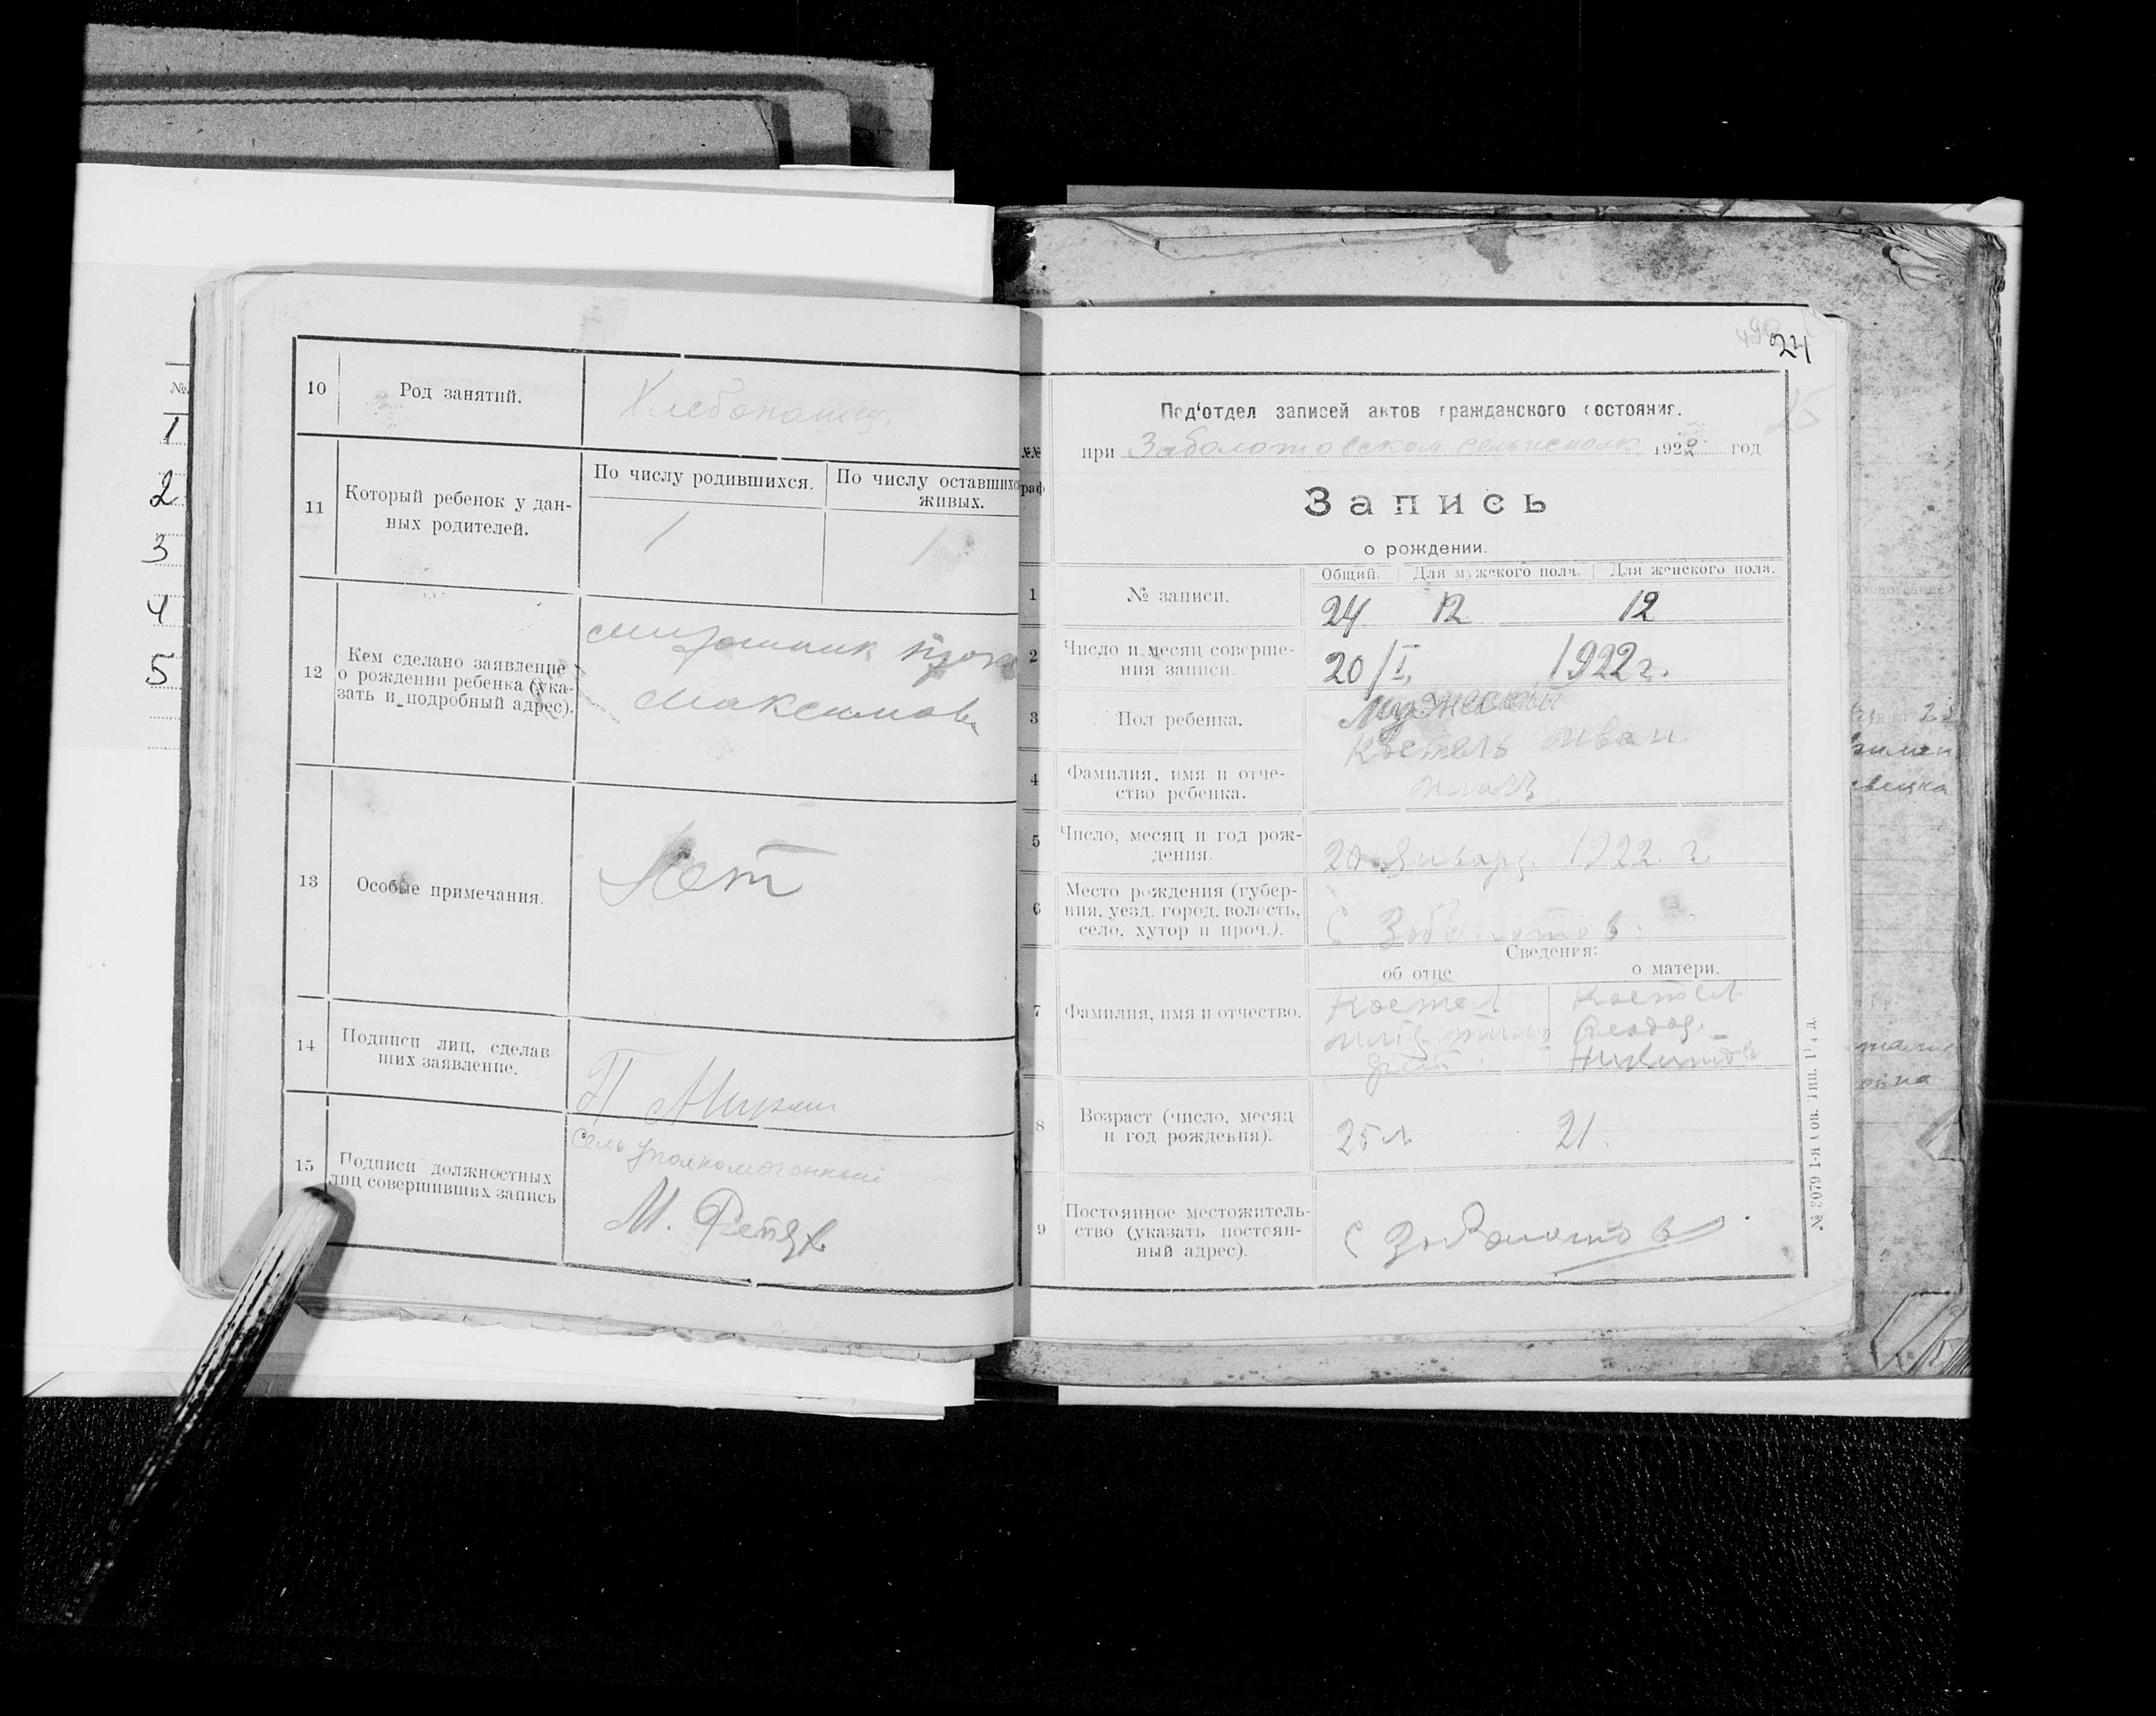 №
1
2
3
4
5
10
Род занятий.
Хлебопашец.
11
Который ребенок у дан-
ных родителей.
По числу родившихся.
По числу оставшихс
живых.
1
1
12
Кем сделано заявление
о рождении ребенка (ука-
зать и подробный адрес).
Мирошник
Максимов
13
Особые примечания.
Нет
14
Подписи лиц, сделав
ших заявление.
П
15
Подписи должностных
лиц совершивших запись
Сельуполномоченный
М.
24
Под'отдел записей актов гражданского состояния.
при Заболотовском сельисполк. 1922 год
№№
граф
Запись
о рождении.
1
№ записи.
Общий. Для мужского пола. Для женского пола.
24 12 12
2
Число и месяц соверше-
ния записи.
20/I, 1922 г.
3
Пол ребенка.
Мужеский
4
Фамилия, имя и отче-
ство ребенка.
Костель Иван
5
Число, месяц и год рож-
дения.
20 января 1922 г.
6
Место рождения (губер-
ния, уезд, город, волость,
село, хутор и проч.).
С Заболотов
Сведения:
об отце
о матери.
7
Фамилия, имя и отчество.
Костел
Костел
8
Возраст (число, месяц
и год рождения).
25 л.
21.
9
Постоянное местожитель-
ство (указать постоян-
ный адрес).
С Заболотов